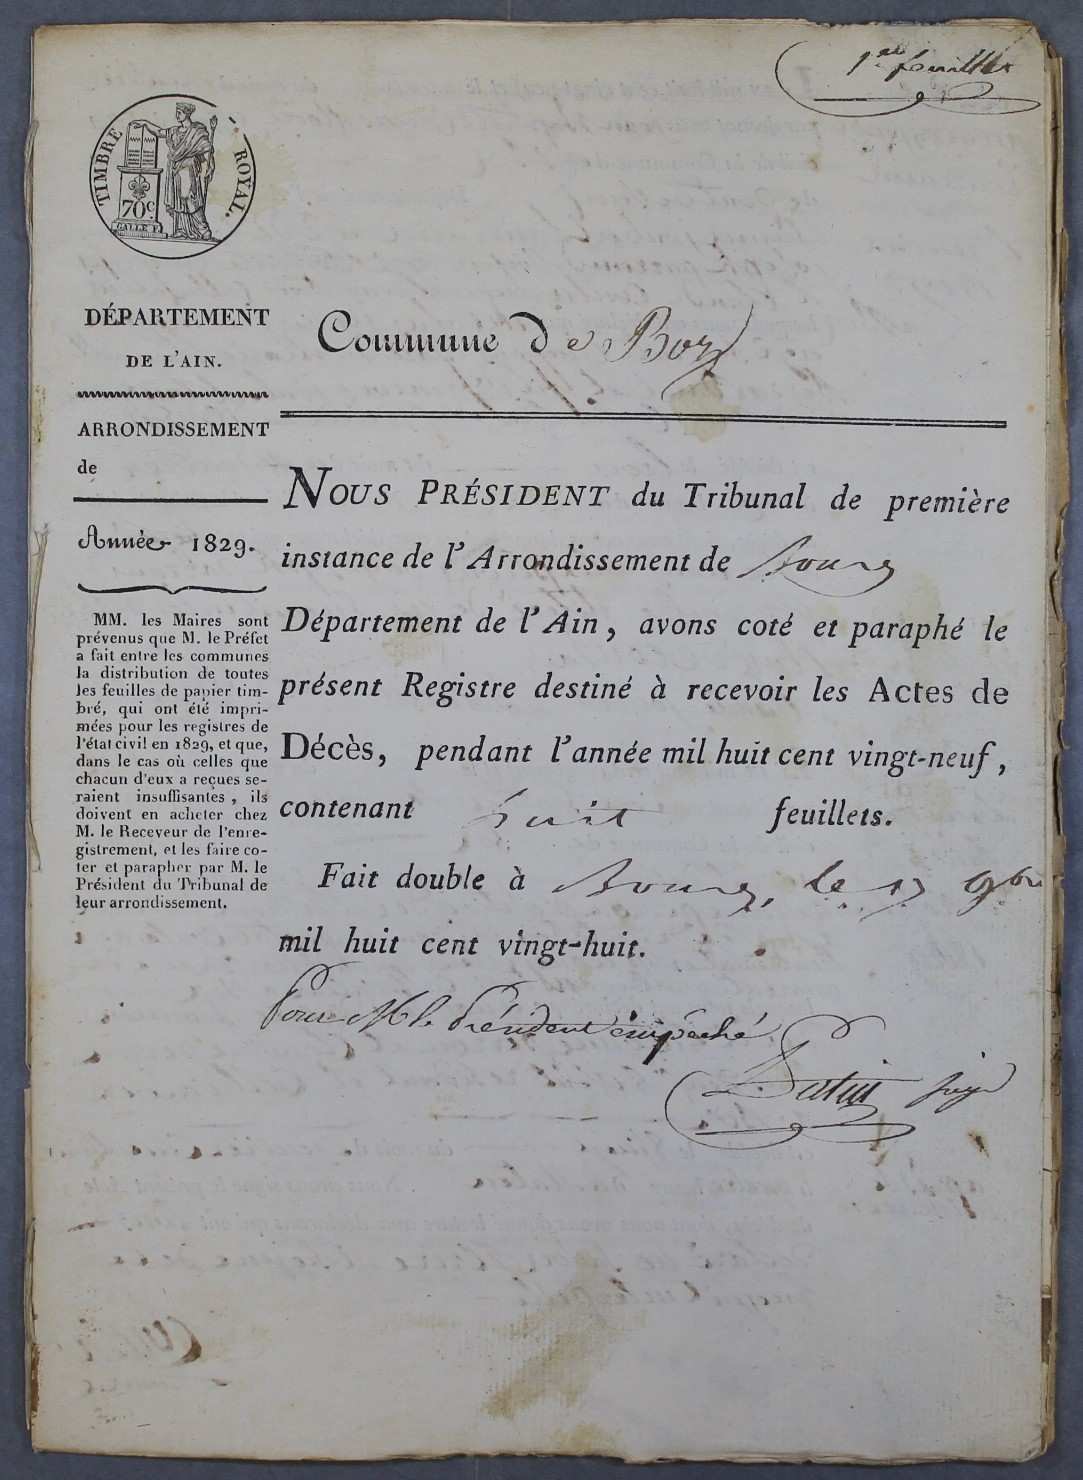 1er feuillet
TIMBRE ROYAL.
70c
GALLE F.
DÉPARTEMENT
DE L'AIN.
ARRONDISSEMENT
de
Année 1829.
MM. les Maires sont
prévenus que M. le Préfet
a fait entre les communes
la distribution de toutes
les feuilles de papier tim-
bré, qui ont été impri-
mées pour les registres de
l'état civil en 1829, et que,
dans le cas où celles que
chacun d'eux a reçues se-
raient insuffisantes, ils
doivent en acheter chez
M. le Receveur de l'enre-
gistrement, et les faire co-
ter et parapher par M. le
Président du Tribunal de
leur arrondissement.
Commune De Boz
NOUS PRÉSIDENT du Tribunal de première
instance de l'Arrondissement de Bourg
Département de l'Ain, avons coté et paraphé le
présent Registre destiné à recevoir les Actes de
Décès, pendant l'année mil huit cent vingt-neuf,
contenant huit feuillets.
Fait double à Bourg, le 17 9bre
mil huit cent vingt-huit.
Pour M. le Président empêché
juge